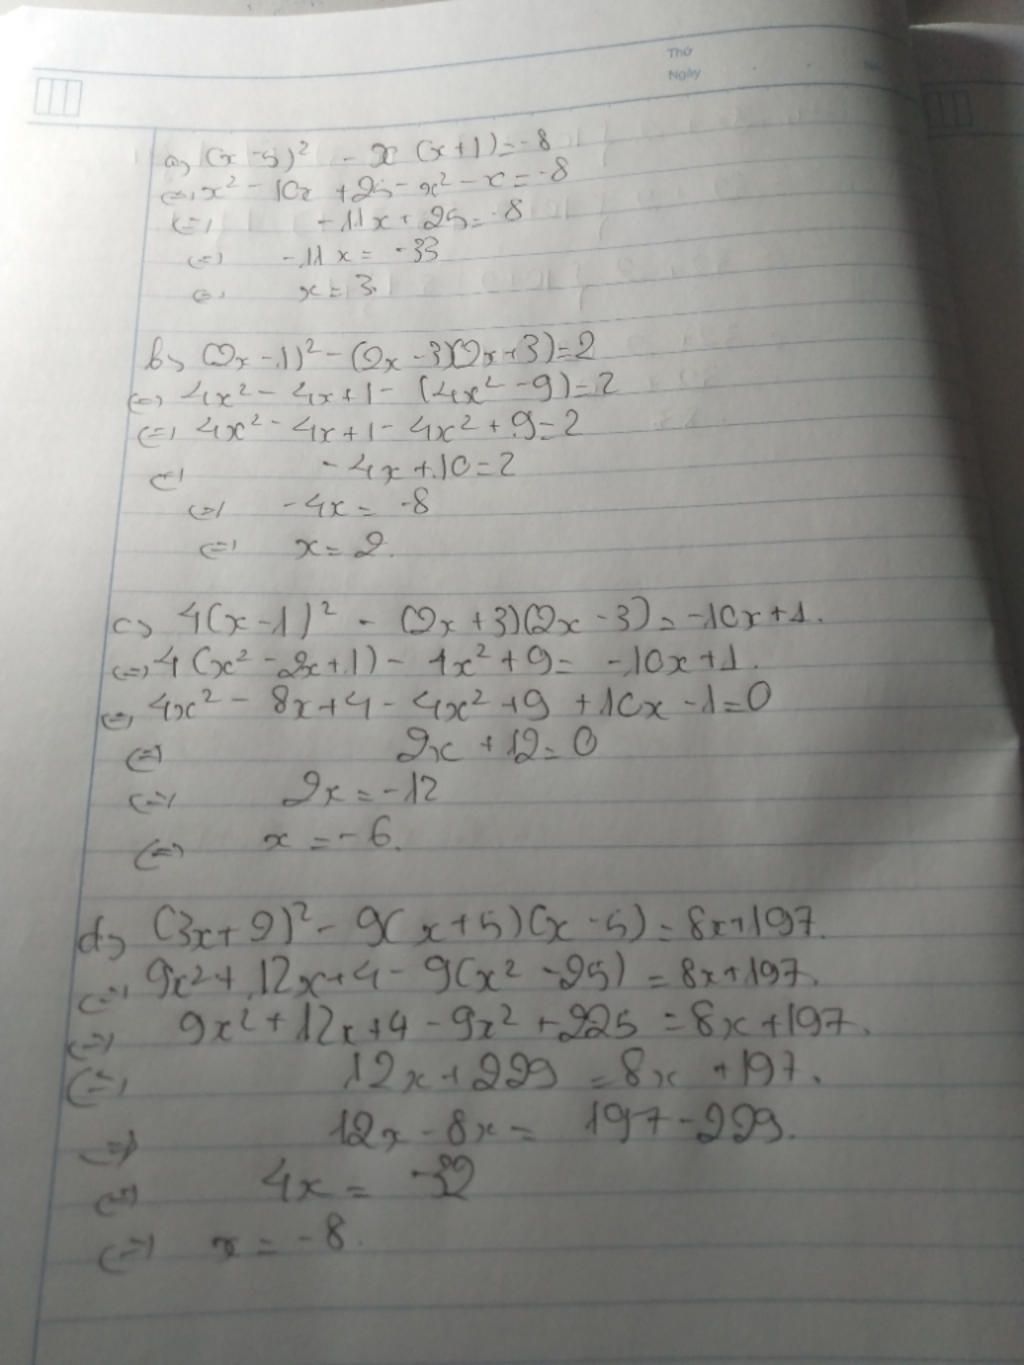 Thứ
Ngày
a, (x-5)² - x(x+1)=-8
<=> x² - 10x + 25 - x² - x = -8
<=> -11x + 25 = -8
<=> -11x = -33
<=> x = 3.
b, (2x-1)² - (2x-3)(2x+3)=2
<=> 4x² - 4x+1 - (4x² - 9)=2
<=> 4x² - 4x+1 - 4x² + 9=2
<=> -4x+10=2
<=> -4x = -8
<=> x = 2.
c, 4(x-1)² - (2x+3)(2x-3)=-10x+1.
<=> 4(x² - 2x+1) - 4x² + 9 = -10x+1.
<=> 4x² - 8x+4 - 4x² + 9 + 10x - 1=0
<=> 2x + 12=0
<=> 2x = -12
<=> x = -6.
d, (3x+2)² - 9(x+5)(x-5) = 8x+197.
<=> 9x² + 12x+4 - 9(x² - 25) = 8x+197.
<=> 9x² + 12x+4 - 9x² + 225 = 8x+197.
<=> 12x+229 = 8x +197.
<=> 12x - 8x = 197-229.
<=> 4x = -32
<=> x = -8.